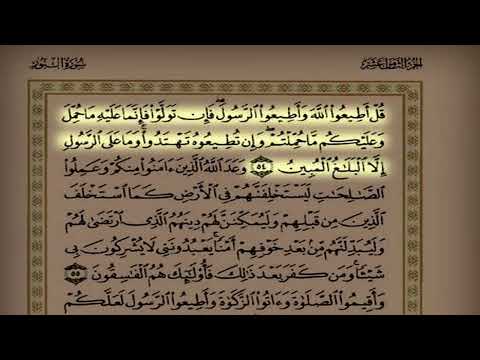 الجزء الثامن عشر
سورة النور
قُلْ أَطِيعُوا۟ ٱللَّهَ وَأَطِيعُوا۟ ٱلرَّسُولَ ۖ فَإِن تَوَلَّوْا۟ فَإِنَّمَا عَلَيْهِ مَا حُمِّلَ
وَعَلَيْكُم مَّا حُمِّلْتُمْ ۖ وَإِن تُطِيعُوهُ تَهْتَدُوا۟ ۚ وَمَا عَلَى ٱلرَّسُولِ
إِلَّا ٱلْبَلَـٰغُ ٱلْمُبِينُ ٥٤ وَعَدَ ٱللَّهُ ٱلَّذِينَ ءَامَنُوا۟ مِنكُمْ وَعَمِلُوا۟
ٱلصَّـٰلِحَـٰتِ لَيَسْتَخْلِفَنَّهُمْ فِى ٱلْأَرْضِ كَمَا ٱسْتَخْلَفَ
ٱلَّذِينَ مِن قَبْلِهِمْ وَلَيُمَكِّنَنَّ لَهُمْ دِينَهُمُ ٱلَّذِى ٱرْتَضَىٰ لَهُمْ
وَلَيُبَدِّلَنَّهُم مِّنۢ بَعْدِ خَوْفِهِمْ أَمْنًا ۚ يَعْبُدُونَنِى لَا يُشْرِكُونَ بِى
شَيْـًٔا ۚ وَمَن كَفَرَ بَعْدَ ذَٰلِكَ فَأُو۟لَـٰٓئِكَ هُمُ ٱلْفَـٰسِقُونَ ٥٥
وَأَقِيمُوا۟ ٱلصَّلَوٰةَ وَءَاتُوا۟ ٱلزَّكَوٰةَ وَأَطِيعُوا۟ ٱلرَّسُولَ لَعَلَّكُمْ